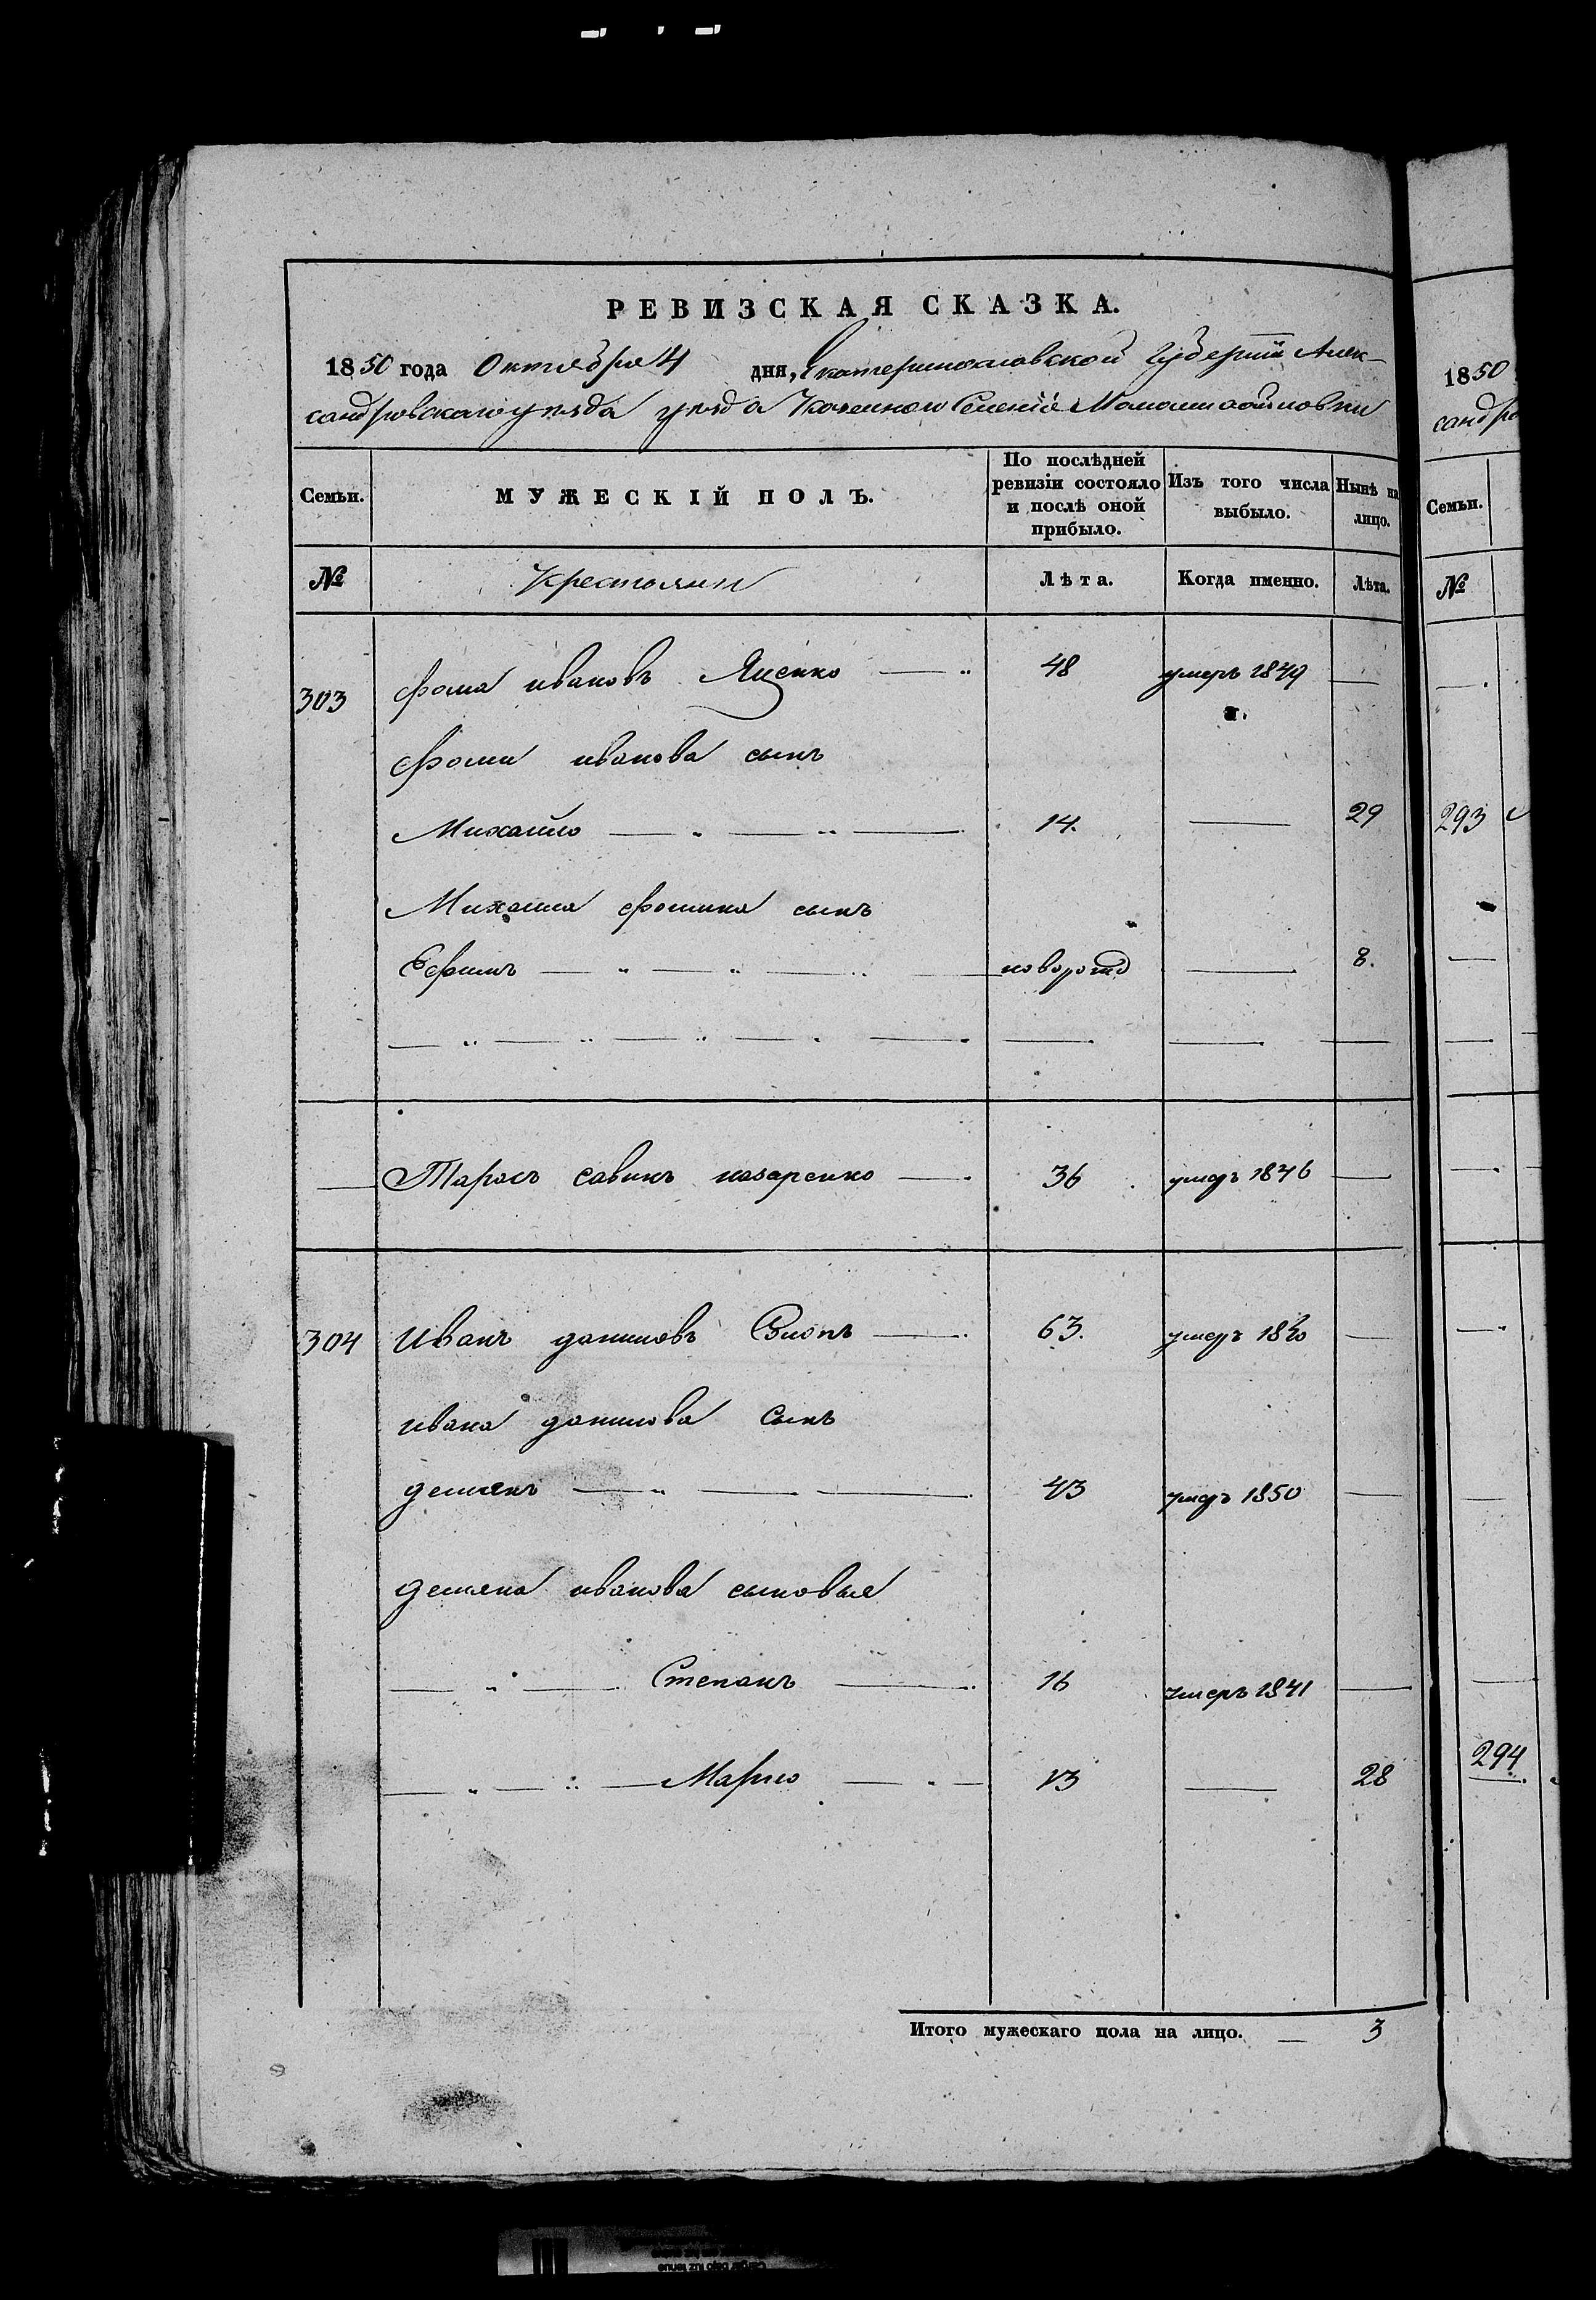 РЕВИЗСКАЯ СКАЗКА.
1850 года Октября 4 дня, Екатеринославской Губернiи Алек-
сандровскаго уезда уезда Казенного Селенiя
Семьи.
МУЖЕСКIЙ ПОЛЪ.
По послѣдней ревизiи состояло и послѣ оной прибыло.
Изъ того числа выбыло.
Нынѣ на лицо.
№
Крестьяни
Лѣта.
Когда именно.
Лѣта.
303 Фома ивановъ Яценко — 48 умеръ 1849 —
г.
Фомы иванова сынъ
Михайло — 14. — 29
Михаила фомина сынъ
Ефимъ — новорожд — 8.
— Тарасъ савинъ назаренко — 36 умеръ 1846 —
304 Иванъ даниловъ — 63. умеръ —
ивана данилова Сынъ
демянъ — 43 умеръ 1850 —
демяна иванова сыновья
Степанъ — 16 умеръ 1841 —
Марко — 13 — 28
Итого мужескаго пола на лицо. — 3
1850
Семьи.
№
293
294